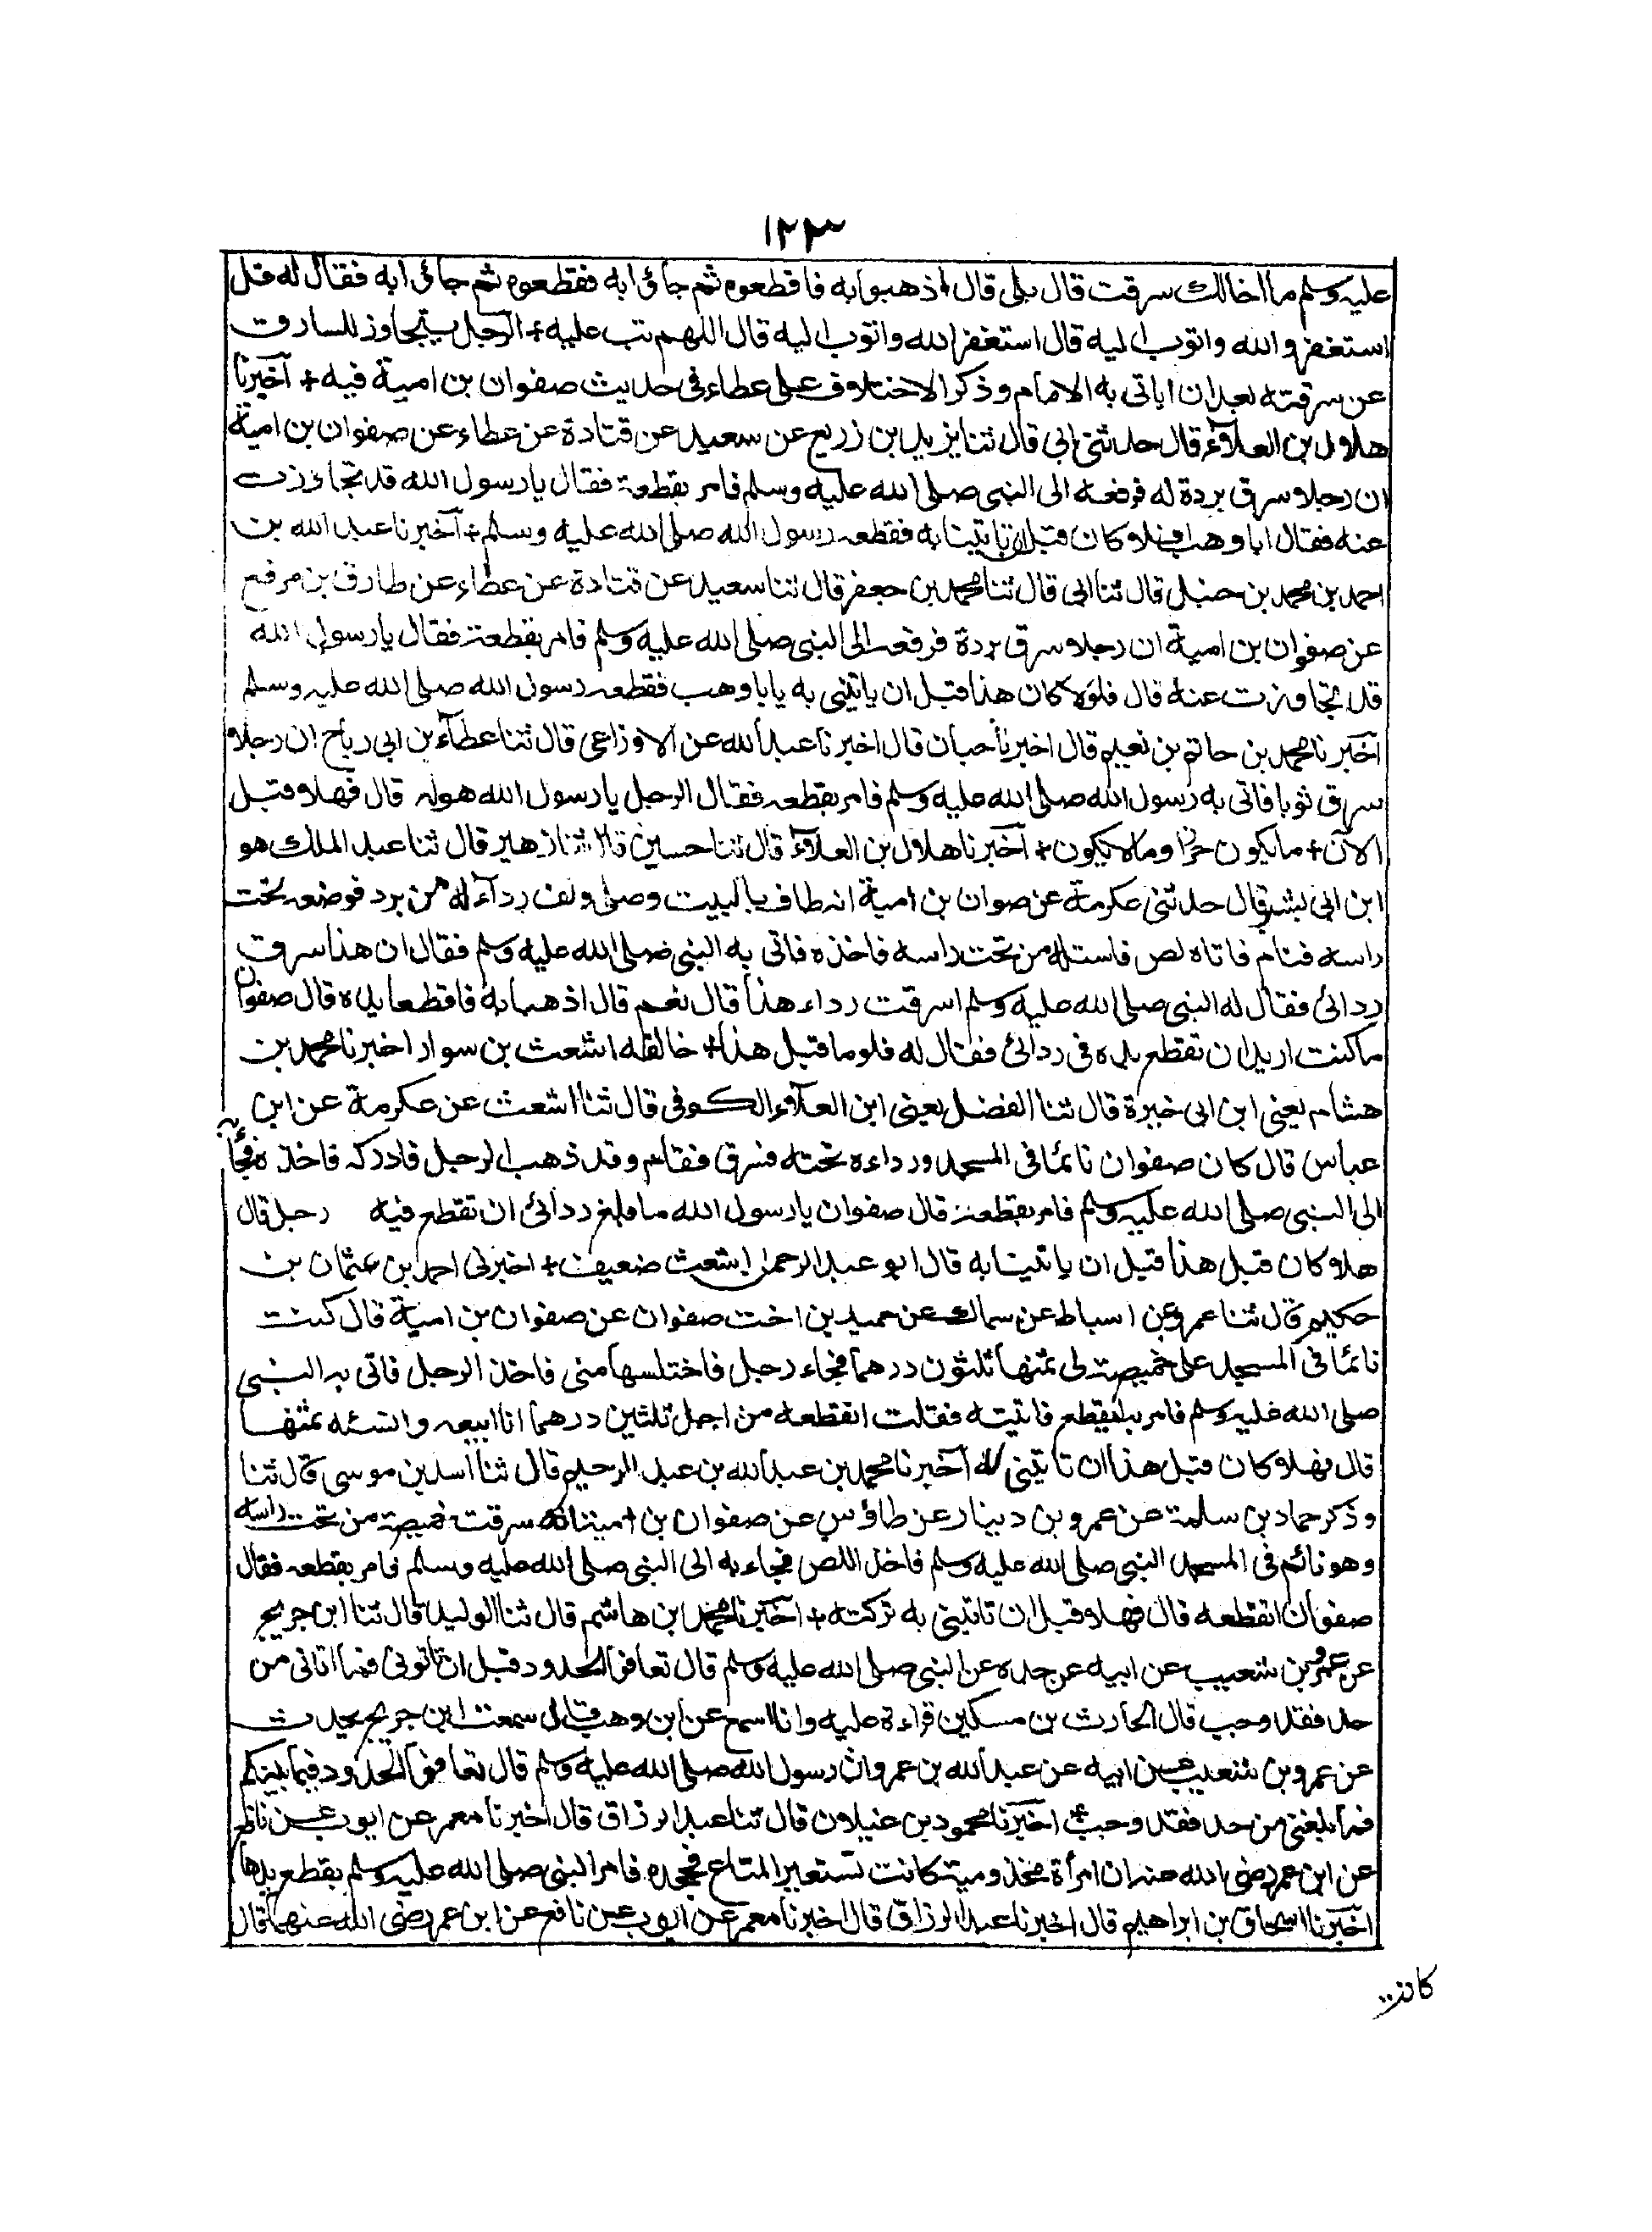 ١٢٢٣
عليه وسلم ما اخالك سرقت قال بلى قال اذهبوا به فاقطعوه ثم جاؤا به فقطعوه ثم جاؤا به فقال له قل
استغفر والله واتوب اليه قال استغفر الله واتوب اليه قال اللهم تب عليه + الرجل يتجاوز للسارق
عن سرقته بعد ان اباتى به الامام وذكر الاختلاف على عطاء فى حديث صفوان بن امية فيه + آخبرنا
هلال بن العلاء قال حدثنى ابى قال ثنا يزيد بن زريع عن سعيد عن قتادة عن عطاء عن صفوان بن امية
ان رجلا سرق بردة له فرفعه الى النبى صلى الله عليه وسلم فامر بقطعة فقال يا رسول الله قد تجاوزت
عنه فقال ابا وهب افلا كان قبل ان تاتينا به فقطعه رسول الله صلى الله عليه وسلم + آخبرنا عبد الله بن
احمد بن محمد بن حنبل قال ثنا ابى قال ثنا محمد بن جعفر قال ثنا سعيد عن قتادة عن عطاء عن طارق بن مرفع
عن صفوان بن امية ان رجلا سرق بردة فرفعه الى النبى صلى الله عليه وسلم فامر بقطعة فقال يا رسول الله
قد تجاوزت عنه قال فلولا كان هذا قبل ان ياتينى به يا با وهب فقطعه رسول الله صلى الله عليه وسلم
آخبرنا محمد بن حاتم بن نعيم قال اخبرنا حبان قال اخبرنا عبد الله عن الاوزاعى قال ثنا عطاء بن ابى رباح ان رجلا
سرق ثوبا فاتى به رسول الله صلى الله عليه وسلم فامر بقطعه فقال الرجل يا رسول الله هوله قال فهلا قبل
الآن + ما يكون حرزا وما لا يكون + آخبرنا هلال بن العلاء قال ثنا حسين قال ثنا زهير قال ثنا عبد الملك هو
ابن ابى بشير قال حدثنى عكرمة عن صوان بن امية انه طاف بالبيت وصلى ولف رداء له من برد فوضعه تحت
راسه فنام فاتاه لص فاستله من تحت راسه فاخذه فاتى به النبى صلى الله عليه وسلم فقال ان هذا سرق
ردائى فقال له النبى صلى الله عليه وسلم اسرقت رداء هذا قال نعم قال اذهبا به فاقطعا يده قال صفوان
ما كنت اريد ان تقطع يده فى ردائى فقال له فلو ما قبل هذا + خالفه اشعث بن سوار اخبرنا محمد بن
هشام يعنى ابن ابى خبرة قال ثنا الفضل يعنى ابن العلاء الكوفى قال ثنا اشعث عن عكرمة عن ابن
عباس قال كان صفوان نائما فى المسجد ورداءه تحته فسرق فقام وقد ذهب الرجل فادركه فاخذه فجاء به
الى النبى صلى الله عليه وسلم فامر بقطعة قال صفوان يا رسول الله ما بلغ ردائى ان تقطع فيه رجل قال
هلا كان قبل هذا قبل ان ياتينا به قال ابو عبد الرحمن اشعث ضعيف + اخبرنى احمد بن عثمان بن
حكيم قال ثنا عمرو عن اسباط عن سماك عن حميد بن اخت صفوان عن صفوان بن امية قال كنت
نائما فى المسجد على خميصة لى ثمنها ثلثون درهما فجاء رجل فاختلسها منى فاخذ الرجل فاتى به النبى
صلى الله عليه وسلم فامر به ليقطع فاتيته فقلت اتقطعه من اجل ثلثين درهما انا ابيعه وانسئه ثمنها
قال فهلا كان قبل هذا ان تاتينى به آخبرنا محمد بن عبد الله بن عبد الرحيم قال ثنا اسد بن موسى قال ثنا
وذكر حماد بن سلمة عن عمرو بن دينار عن طاؤس عن صفوان بن امية انه سرقت خميصة من تحت راسه
وهو نائم فى المسجد النبى صلى الله عليه وسلم فاخذ اللص فجاء به الى النبى صلى الله عليه وسلم فامر بقطعه فقال
صفوان اتقطعه قال فهلا قبل ان تاتينى به تركته + آخبرنا محمد بن هاشم قال ثنا الوليد قال ثنا ابن جريج
عن عمرو بن شعيب عن ابيه عن جده عن النبى صلى الله عليه وسلم قال تعافوا الحدود قبل ان تاتونى فما اتانى من
حد فقد وجب قال الحارث بن مسكين قراءة عليه وانا اسمع عن ابن وهب قال سمعت ابن جريج يحدث
عن عمرو بن شعيب عن ابيه عن عبد الله بن عمرو ان رسول الله صلى الله عليه وسلم قال تعافوا الحدود فيما بينكم
فما بلغنى من حد فقد وجب + اخبرنا محمود بن غيلان قال ثنا عبد الرزاق قال اخبرنا معمر عن ايوب عن نافع
عن ابن عمر رضى الله عنه ان امرأة مخذومية كانت تستعير المتاع فجحده فامر النبى صلى الله عليه وسلم بقطع يدها
آخبرنا اسحاق بن ابراهيم قال اخبرنا عبد الرزاق قال اخبرنا معمر عن ايوب عن نافع عن ابن عمر رضى الله عنهما قال
كانت